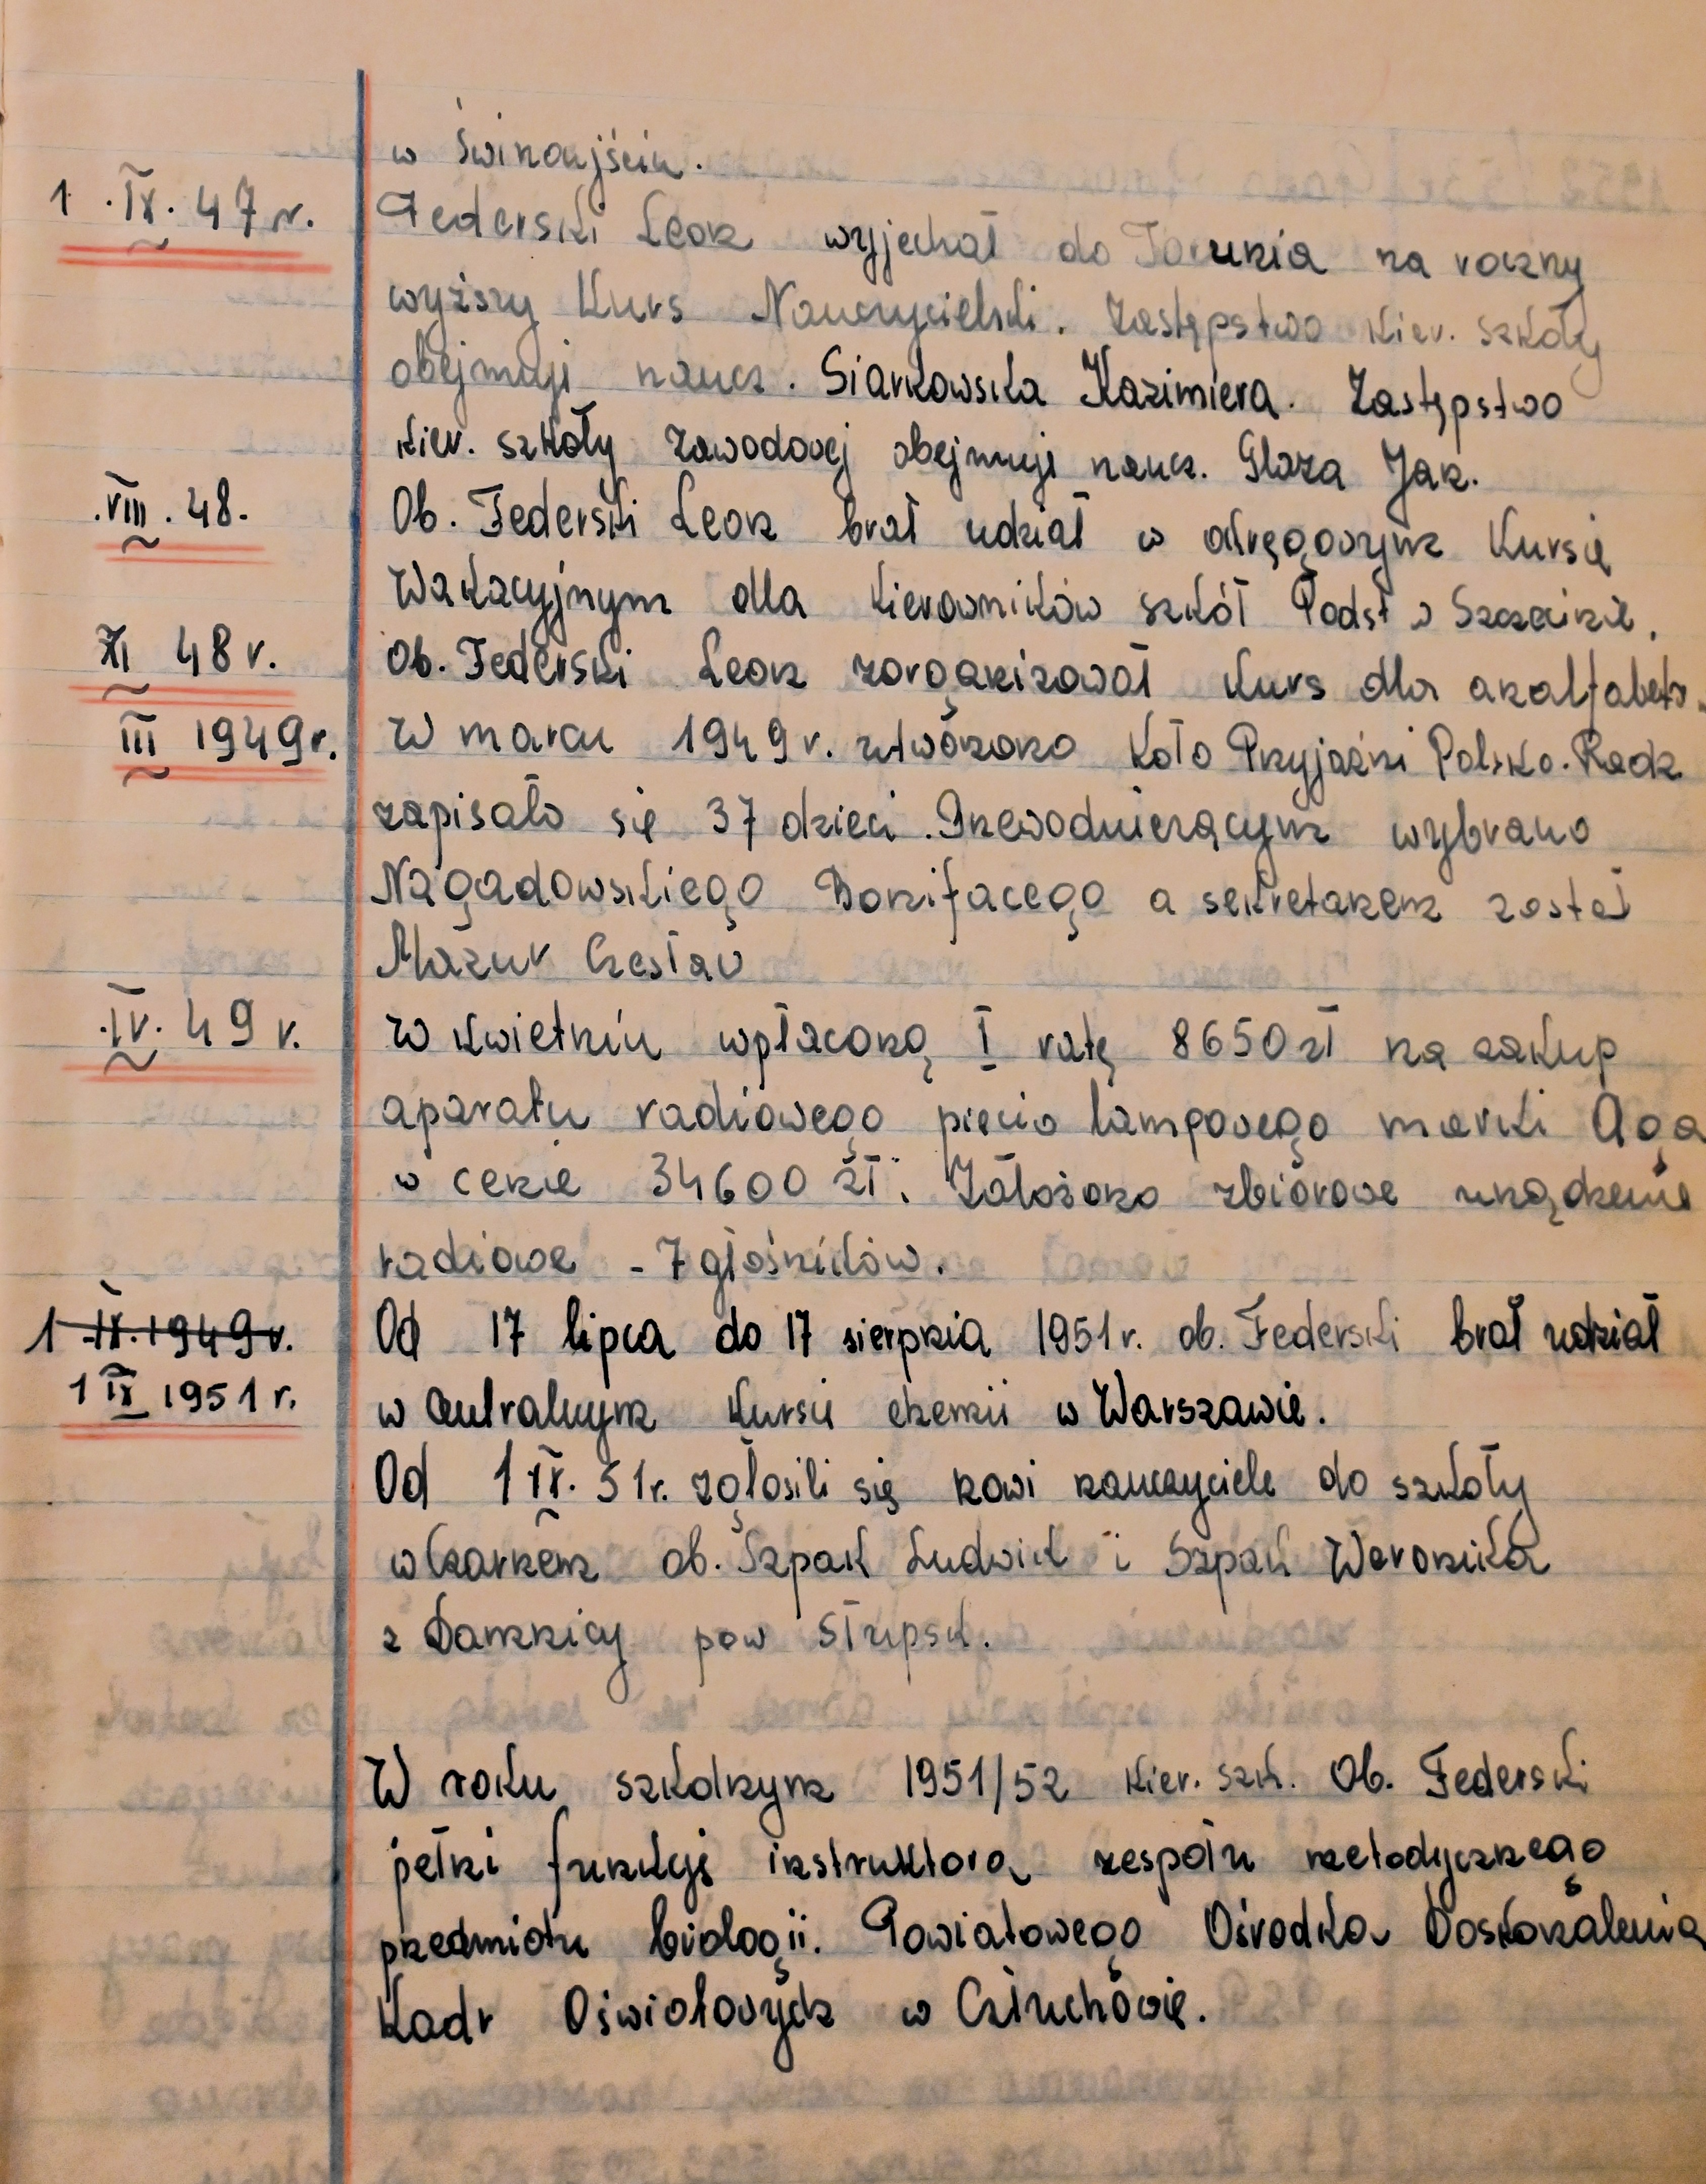 w Świnoujściu.
1.IX.47r. Federski Leon wyjechał do Torunia na roczny
wyższy Kurs Nauczycielski. Zastępstwo kier. szkoły
obejmuje naucz. Siarkowska Kazimiera. Zastępstwo
kier. szkoły zawodowej obejmuje naucz. Glaza Jan.
.VIII.48. Ob. Federski Leon brał udział w okręgowym Kursie
Wakacyjnym dla Kierowników szkół Podst w Szczecinie.
XI 48r. Ob. Federski Leon zorganizował Kurs dla analfabetów.
III 1949r. W marcu 1949r. utworzono Koło Przyjaźni Polsko.Radz
zapisało się 37 dzieci. Przewodniczącym wybrano
Nagadowskiego Bonifacego a sekretarzem został
Mazur Czesław
.IV.49r. W Kwietniu wpłacono I ratę 8650 zł na zakup
aparatu radiowego pięcio lampowego marki Aga
w cenie 34600 zł. Założono zbiorowe urządzenie
radiowe - 7 głośników.
1 IX.1949r. Od 17 lipca do 17 sierpnia 1951r. ob. Federski brał udział
1 IX 1951r. w Centralnym Kursie chemii w Warszawie.
Od 1 IX. 51r. zgłosili się nowi nauczyciele do szkoły
w Czarnem ob. Szpak Ludwik i Szpak Weronika
z Damnicy pow Słupsk.
W roku szkolnym 1951/52 kier. szk. Ob. Federski
pełni funkcję instruktora zespołu metodycznego
przedmiotu biologii. Powiatowego Ośrodka Doskonalenia
Kadr Oświatowych w Człuchowie.